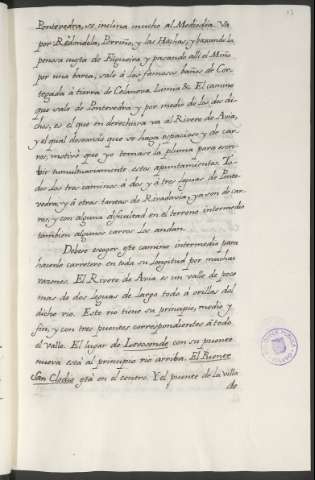 Pontevedra, se inclina mucho al Mediodia. Va
por Redondela, Porriño, y las Háchas, y baxando la
penosa cuesta de Fiqueira y pasando alli el Miño
por una barca, sale á los famosos baños de Cor-
tegada á tierra de Celanova Limia &. El camino
que sale de Pontevedra y por medio de los dos di-
chos, es el que en derechura va al Rivero de Avia,
y el qual deseando que se haga espacioso y de car-
ros, motivó que yo tomase la pluma para escri-
bir tumultuariamente estos apuntamientos. To-
dos los tres caminos á dos y á tres leguas de Ponte-
vedra; y á otras tantas de Rivadavia, ya son de car-
ros; y con alguna dificultad en el terreno intermedio
tambien algunos carros los andan.
Debese escoger este camino intermedio para
hacerlo carretero en toda su longitud por muchas
razones. El Rivero de Avia es un valle de poco
mas de dos leguas de largo todo á orillas del
dicho rio. Este rio tiene su principio, medio y
fin, y con tres puentes correspondientes á todo
el valle. El lugar de con su puente
nueva está al principio rio arriba. El Puente
San Clodio está en el centro. Y el puente de la villa
de